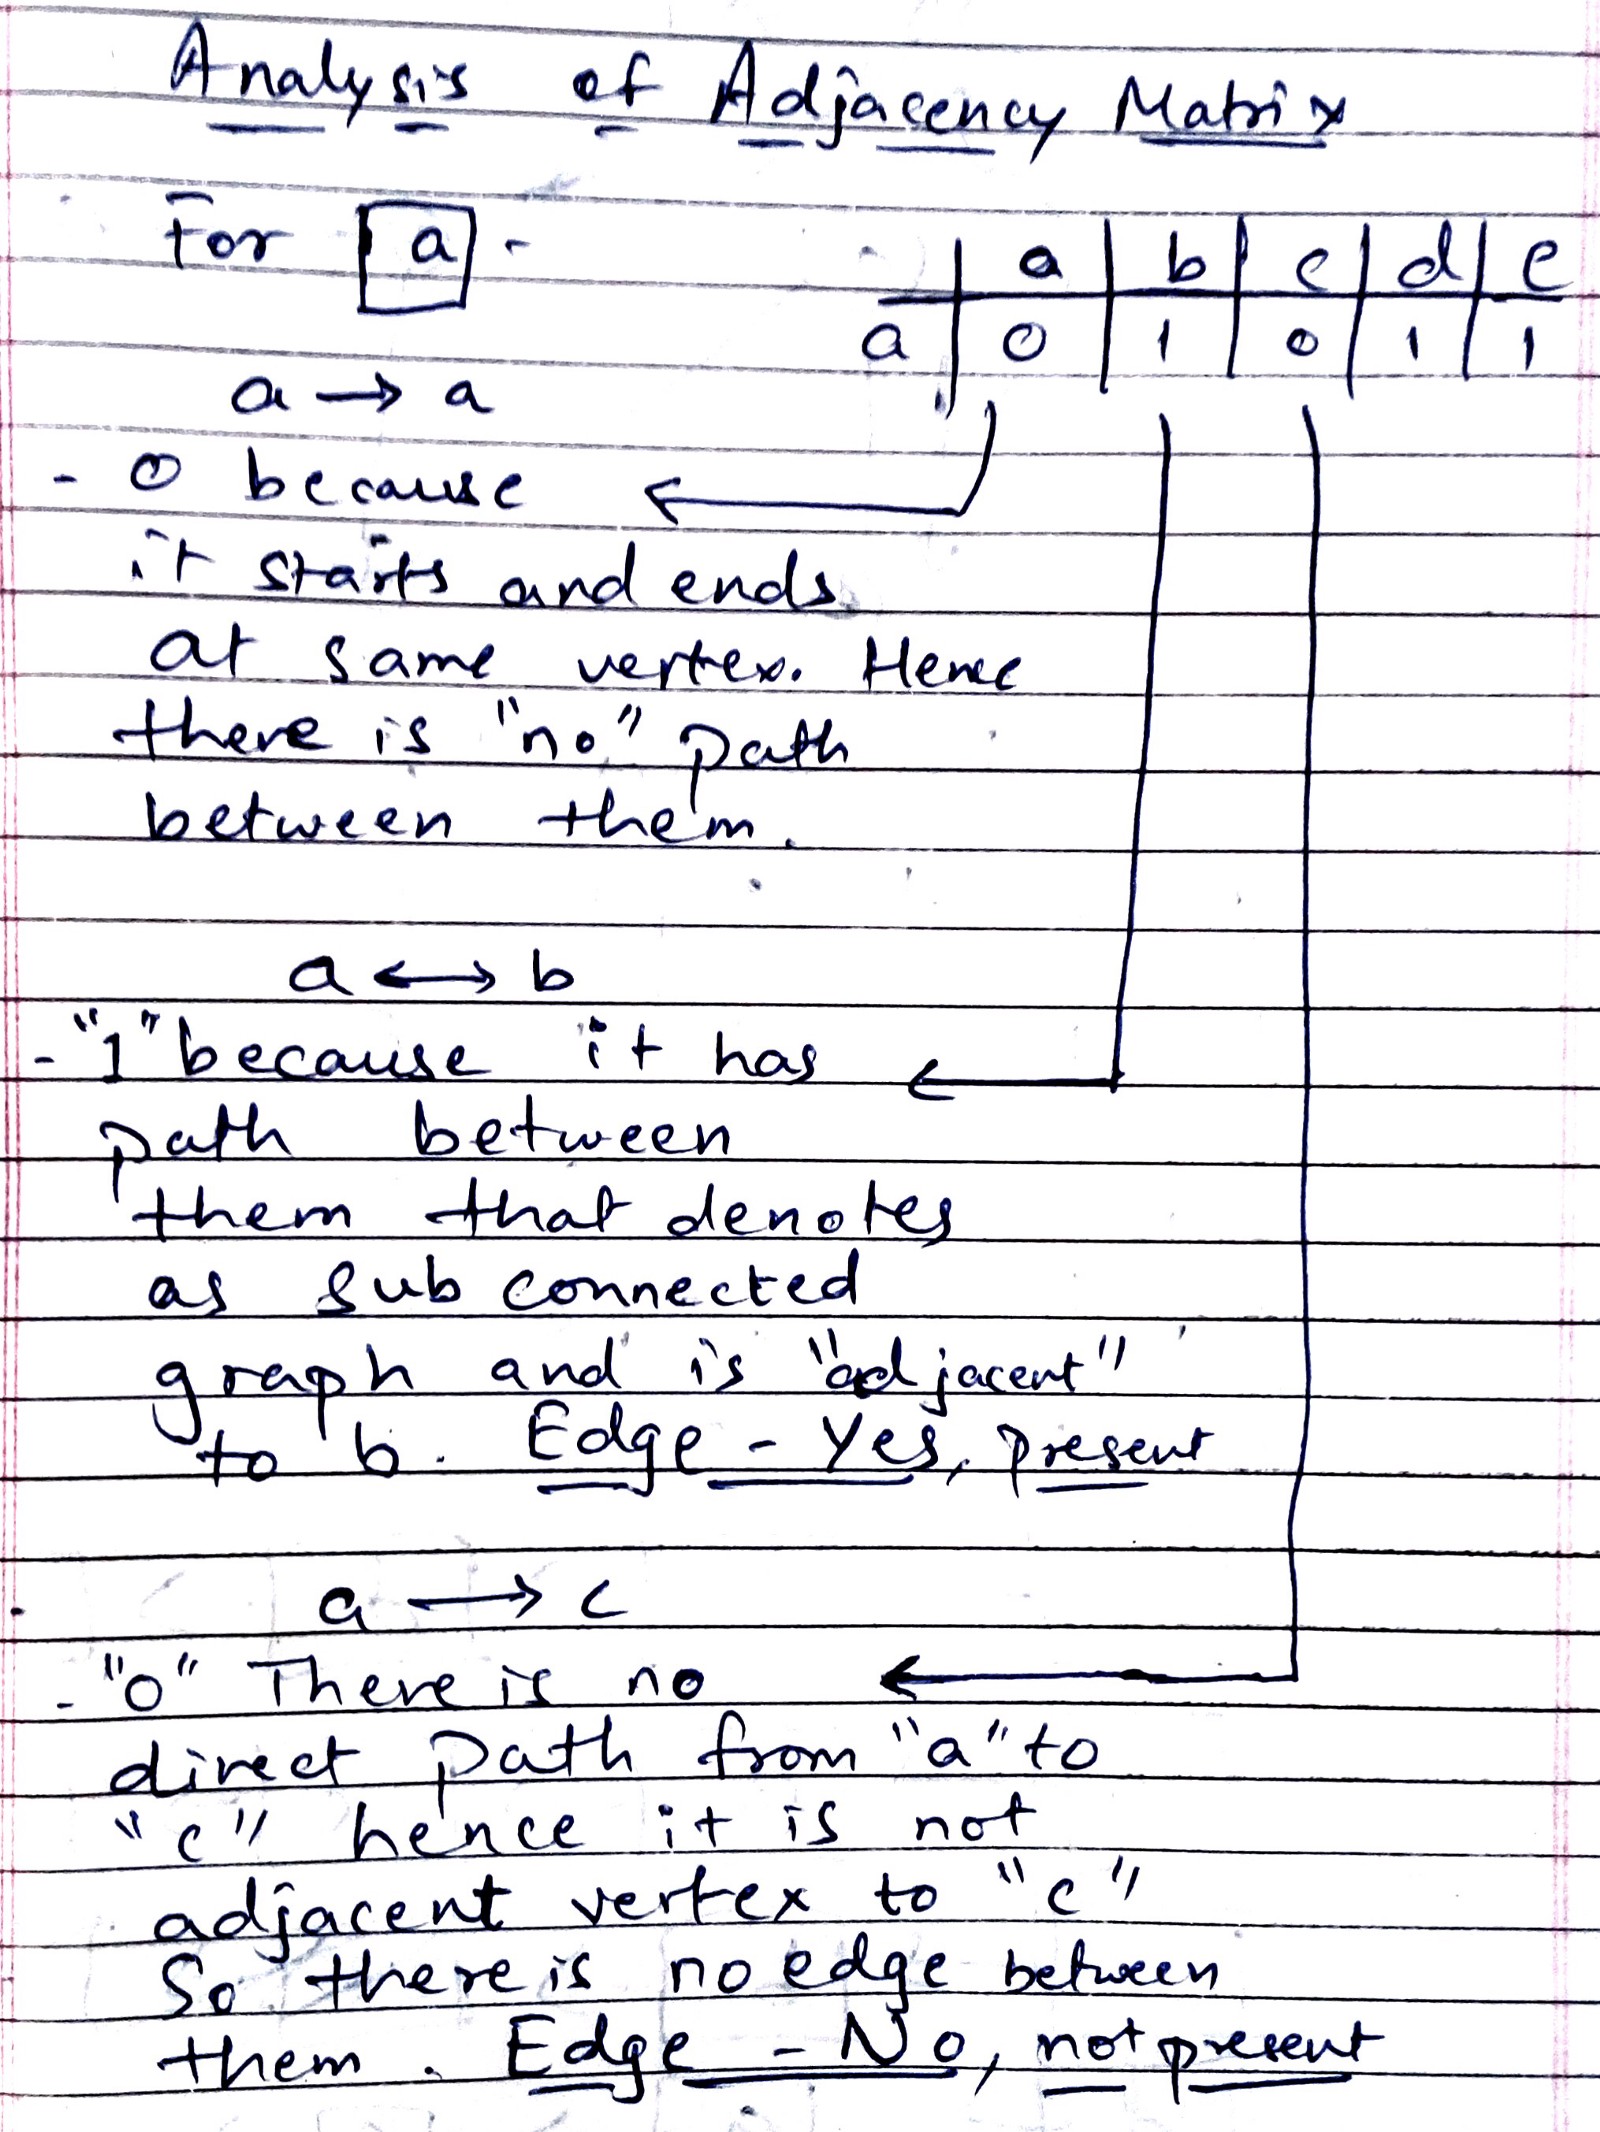 Analysis of Adjacency Matrix
For a -
a b c d e
a 0 1 0 1 1
a → a
- 0 because
it starts and ends
at same vertex. Hence
there is "no" path
between them.
a ↔ b
- "1" because it has
path between
them that denotes
as sub connected
graph and is "adjacent"
to b. Edge - Yes, present
a → c
- "0" There is no
direct path from "a" to
"c" hence it is not
adjacent vertex to "c"
So there is no edge between
them. Edge - No, not present